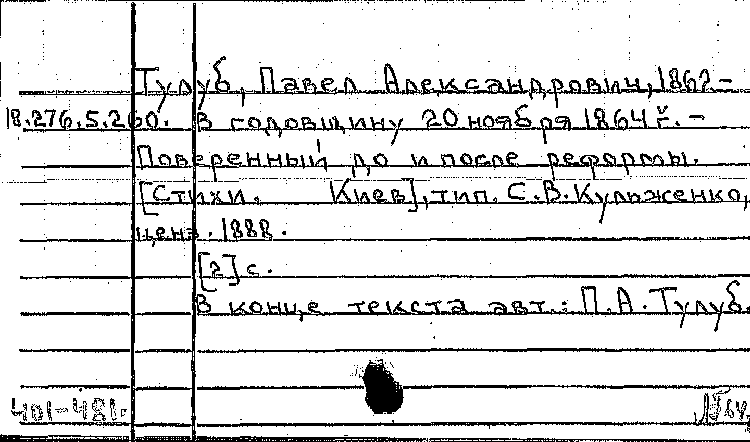 Тулуб, Павел Александрович, 1862-
18.276.5.260. В годовщину 20 ноября 1864 г. -
Поверенный до и после реформы.
[Стихи. Киев], тип. С.В. Кульженко,
ценз. 1888.
[2] с.
В конце текста авт.: П.А. Тулуб.
401-481.